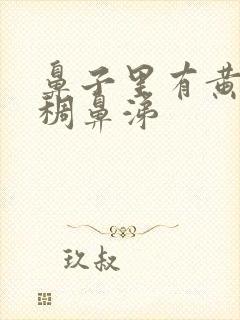 鼻子里有黄
稠鼻涕
玖叔